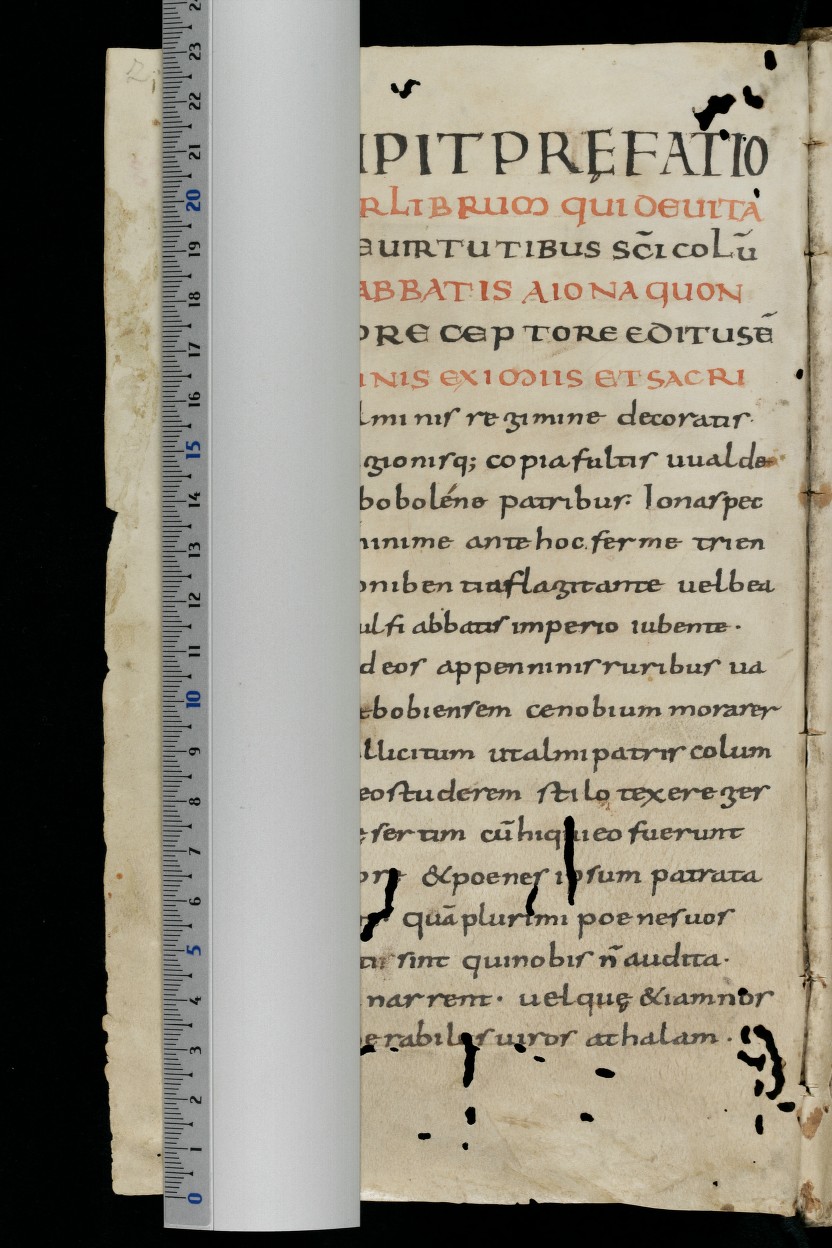 IPIT PRĘFATIO
R LIBRUM QUI DE UITA
E UIRTUTIBUS SC̄I COLŪ
ABBATIS A IONA QUON
PRECEPTORE EDITUS Ē
INIS EXIMIIS ET SACRI
lminis regimine decoratis·
gionisq; copia fultis uualde
boboléno patribus: Ionas pec
minime ante hoc ferme trien
oniben tia flagitante uel bea
ulfi abbatis imperio iubente·
deos appenninis ruribus ua
ebobiensem cenobium morarer
llicitum ut almi patris colum
eo studerem stilo texere ges
ęsertim cū hi qui eo fuerunt
ore & poenes ipsum patrata
quā plurimi poenes uos
sint qui nobis n̄ audita·
narrent· uel quę & iam nos
erabiles uiros athalam·
23
22
21
20
19
18
17
16
15
14
13
12
11
10
9
8
7
6
5
4
3
2
1
0